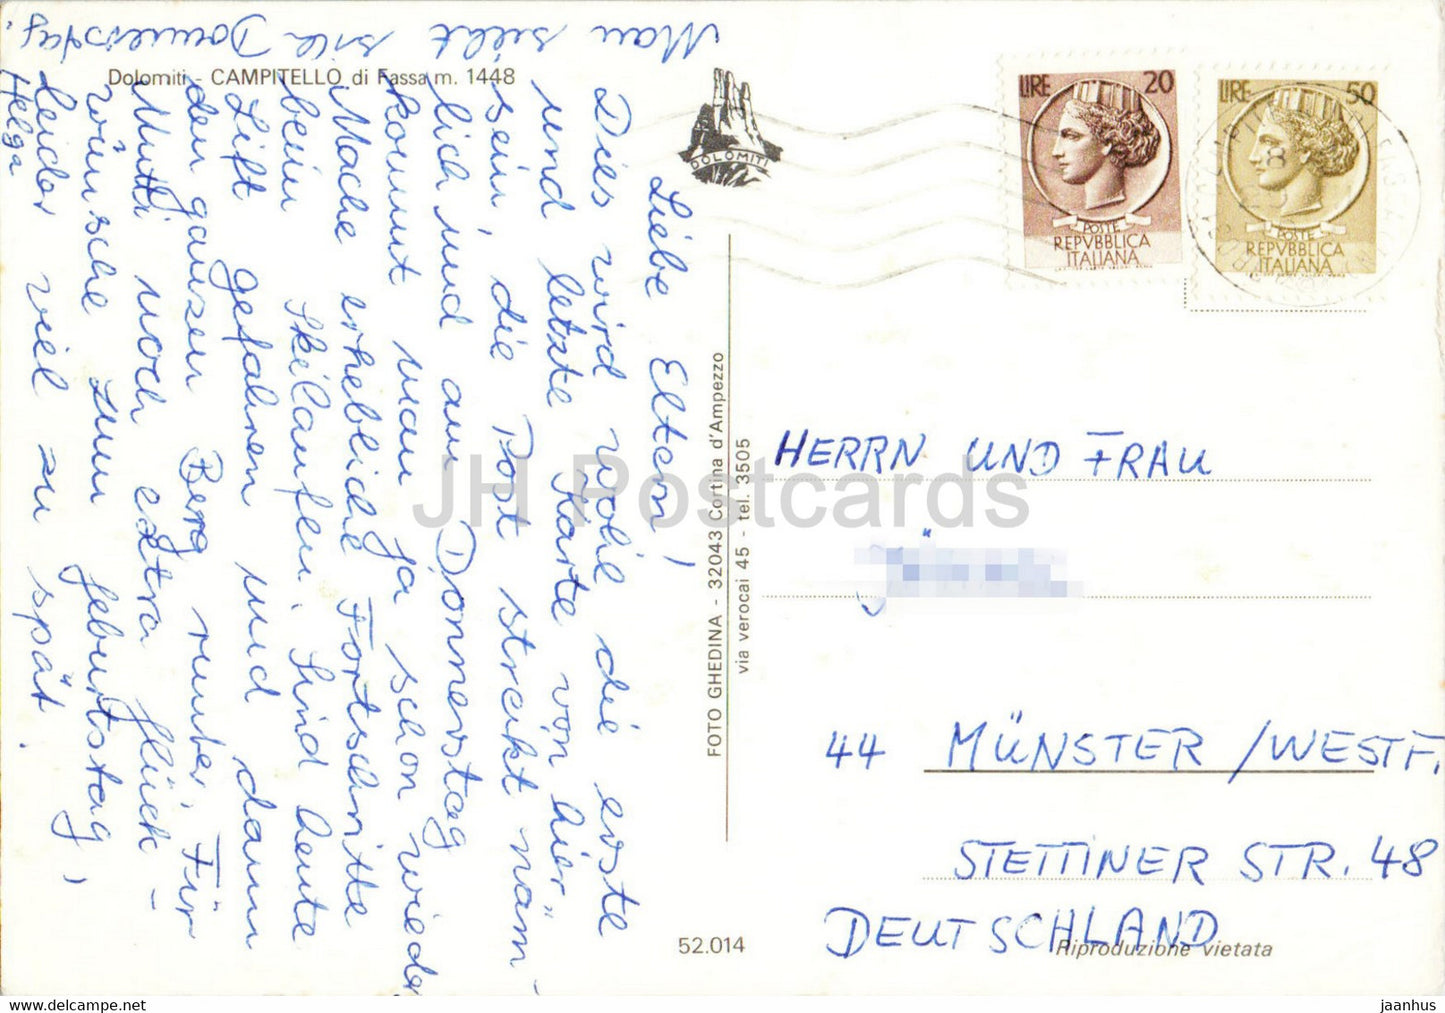 Man sieht sich Donnerstag.
Dolomiti - CAMPITELLO di Fassa m. 1448
DOLOMITI
LIRE 20
POSTE
REPVBBLICA
ITALIANA
LIRE 50
POSTE
REPVBBLICA
ITALIANA
Liebe Eltern!
Dies wird wohl die erste
und letzte Karte von hier
sein, die Post streikt näm-
lich und am Donnerstag
kommt man ja schon wieder
Mache erhebliche Fortschritte
beim Skilaufen. Sind heute
Lift gefahren und dann
den ganzen Berg runter. Für
Mutti noch extra Glück-
wünsche zum Geburtstag,
leider viel zu spät.
Helga
FOTO GHEDINA - 32043 Cortina d'Ampezzo
via verocai 45 - tel. 3505
HERRN UND FRAU
44 MÜNSTER/WESTF.
STETTINER STR. 48
DEUTSCHLAND
52.014
Riproduzione vietata
JH Postcards
jaanhus — HipPostcard.com